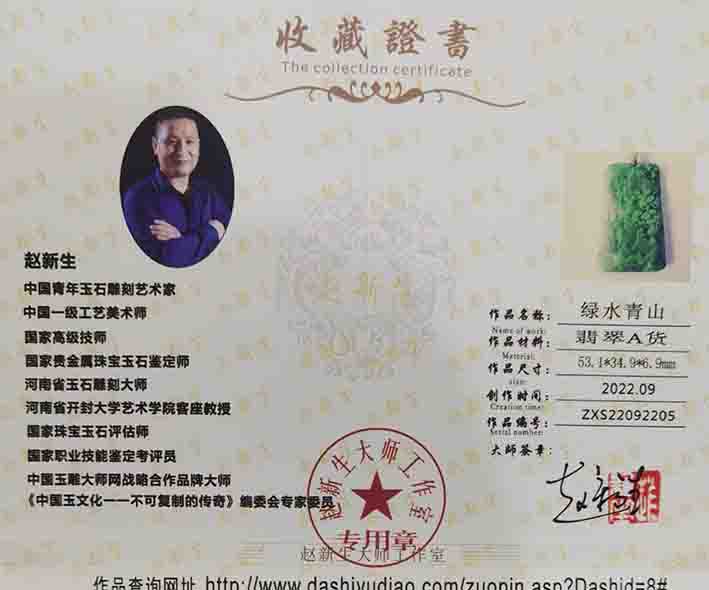 收藏證書
The collection certificate
赵新生
中国青年玉石雕刻艺术家
中国一级工艺美术师
国家高级技师
国家贵金属珠宝玉石鉴定师
河南省玉石雕刻大师
河南省开封大学艺术学院客座教授
国家珠宝玉石评估师
国家职业技能鉴定考评员
中国玉雕大师网战略合作品牌大师
《中国玉文化——不可复制的传奇》编委会专家委员
作品名称: 绿水青山
Name of work:
作品材料: 翡翠A货
Material:
作品尺寸: 53.1*34.9*6.9mm
size:
创作时间: 2022.09
Creation time:
作品编号: ZXS22092205
Serial number:
大师签章:
赵新生大师工作室
专用章
赵新生大师工作室
作品查询网址 http://www.dashiyudiao.com/zuopin.asp?Dashid=8#